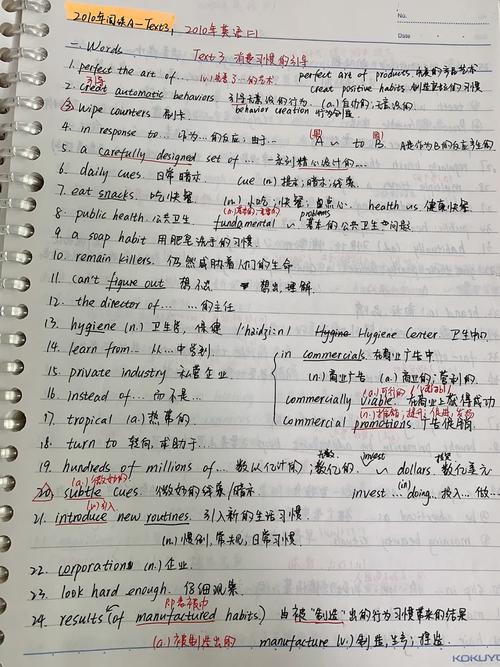 No.
Date
2010年阅读A-Text3,
2010年英语(二)
一. Words
Text 3 消费习惯的引导
1. perfect the art of... (v.) 完善了…的艺术 perfect art of products
2. creat automatic behaviors 引导无意识的行为. (a.) 自动的;无意识的. creat positive habits
引导
behavior creation 行为创造
③ wipe counters
4. in response to... 作为…的反应;由于… A ~ to B A是作为B的反应
5. a carefully designed set of... 一系列精心设计的…
6. daily cues. 日常暗示. cue (n.) 提示;暗示;线索.
7. eat snacks. 吃快餐 (n.) 小吃;快餐;点心. health
8. public health. 公共卫生. fundamental ~ problems 基本的公共卫生问题
9. a soap habit 用肥皂洗手的习惯.
10. remain killers. 仍然威胁着人们的生命
11. can't figure out 想不出 想出,理解.
12. the director of... …的主任
13. hygiene (n.) 卫生学, 保健 Hygiene Center. 卫生中心
14. learn from... 从…中学到. in commercials. 在商业广告中
15. private industry 私营企业. (n.) 商业广告 (a.) 商业的;营利的.
16. instead of... 而不是… commercially viable. 在商业上获得成功
(a.) 可行的
17. tropical (a.) 热带的. commercial promotions. 广告促销
18. turn to 转向,求助于…
19. hundreds of millions of... 数以亿计的;数亿的. invest ~ dollars. 数亿美元
(a.) 微妙的
20. subtle cues. 微妙的线索/暗示. invest ... (in) doing... 投入…做…
(v.) 引入
21. introduce new routines. 引入新的生活习惯
(n.) 惯例,常规,日常习惯.
22. corporation (n.) 企业.
23. look hard enough. 仔细观察.
24. results (of manufactured habits) 由被"制造"出的行为习惯带来的结果
(a.) 被制造出的 manufacture (v.) 制造,生产;捏造.
KOKUYO